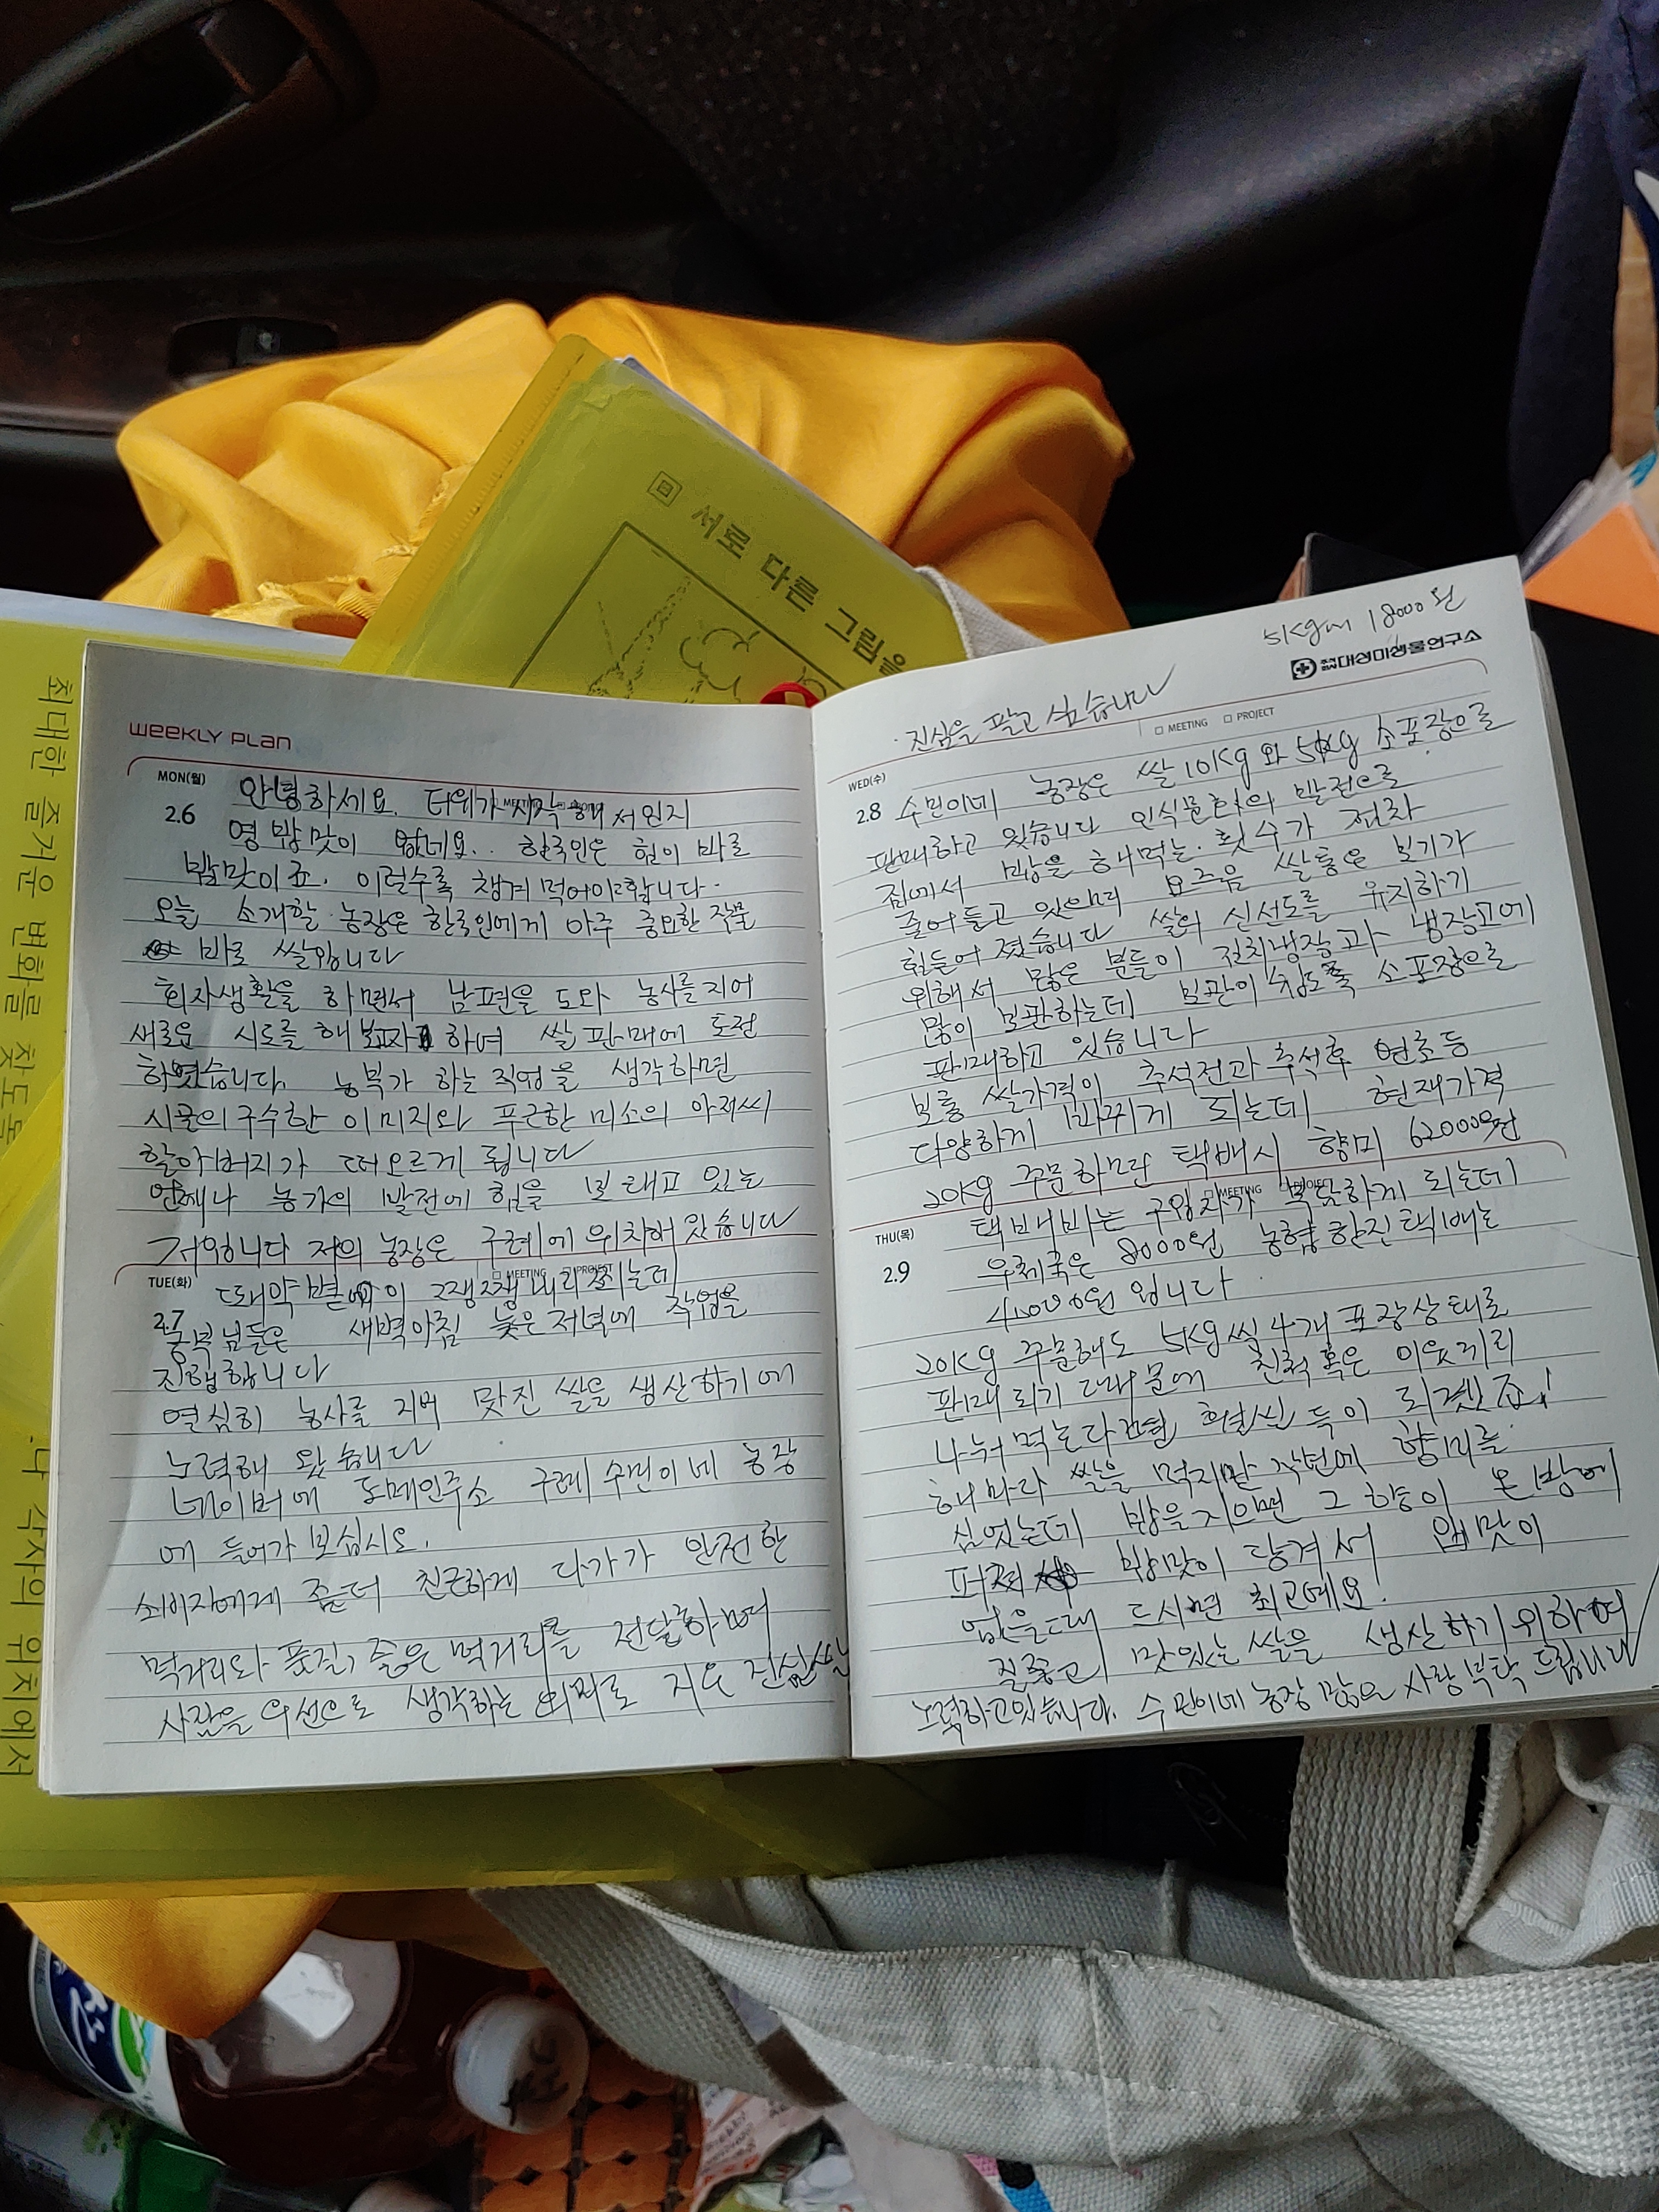 서로 다른 그림을
최대한 즐거운 변화를 찾도록
각자의 위치에서
WEEKLY PLAN
MON(월)
2.6
안녕하세요. 더위가 시작해서인지
영 밥맛이 없네요.. 한국인은 힘이 바로
밥맛이죠. 이럴수록 챙겨 먹어야합니다.
오늘 소개할 농장은 한국인에게 아주 중요한 작물
바로 쌀입니다
회사생활을 하면서 남편을 도와 농사를 지어
새로운 시도를 해보고자 하여 쌀 판매에 도전
하였습니다. 농부가 하는 직업을 생각하면
시골의 구수한 이미지와 푸근한 미소의 아저씨
할아버지가 떠오르게 됩니다
언제나 농가의 발전에 힘을 보태고 있는
저입니다 저의 농장은 구례에 위치해 있습니다
TUE(화)
MEETING PROJECT
2.7
땡약볕이 쨍쨍 내리쬐는데
농부님들은 새벽아침 늦은저녁에 작업을
진행합니다
열심히 농사를 지어 맛진 쌀을 생산하기에
노력해 왔습니다
네이버에 도메인주소 구례 수민이네 농장
에 들어가 보십시요.
소비자에게 좀더 친근하게 다가가 안전한
먹거리와 품질 좋은 먹거리를 전달하며
사람을 우선으로 생각하는 지은 진심쌀
5kg 18000원
대성미생물연구소
진심을 팔고 싶습니다
MEETING PROJECT
WED(수)
2.8
수민이네 농장은 쌀 10kg와 5kg 소포장으로
판매하고 있습니다 인식문화의 발전으로
집에서 밥을 해먹는 횟수가 점차
줄어들고 있으며 요즈음 쌀통은 보기가
힘들어졌습니다 쌀의 신선도를 유지하기
위해서 많은 분들이 김치냉장고과 냉장고에
많이 보관하는데 보관이 쉽도록 소포장으로
판매하고 있습니다
보통 쌀가격이 추석전과 추석후 연초등
다양하게 바뀌게 되는데 현재가격
20kg 주문하면 택배시 향미 62000원
THU(목)
MEETING PROJECT
2.9
택배비는 구입자가 부담하게 되는데
우체국은 8000원 농협 한진택배는
4000원 입니다.
20kg 주문해도 5kg씩 4개 포장상태로
판매되기 때문에 친척 혹은 이웃끼리
나눠 먹는다면 훨씬 득이 되겠죠!
해마다 쌀을 먹지만 작년에 향미를
심었는데 밥을 지으면 그 향이 온 방에
퍼져 밥맛이 당겨서 입맛이
없을때 드시면 최고예요.
질좋고 맛있는 쌀을 생산하기 위하여
노력하고있습니다. 수민이네 농장 많은 사랑 부탁 드립니다